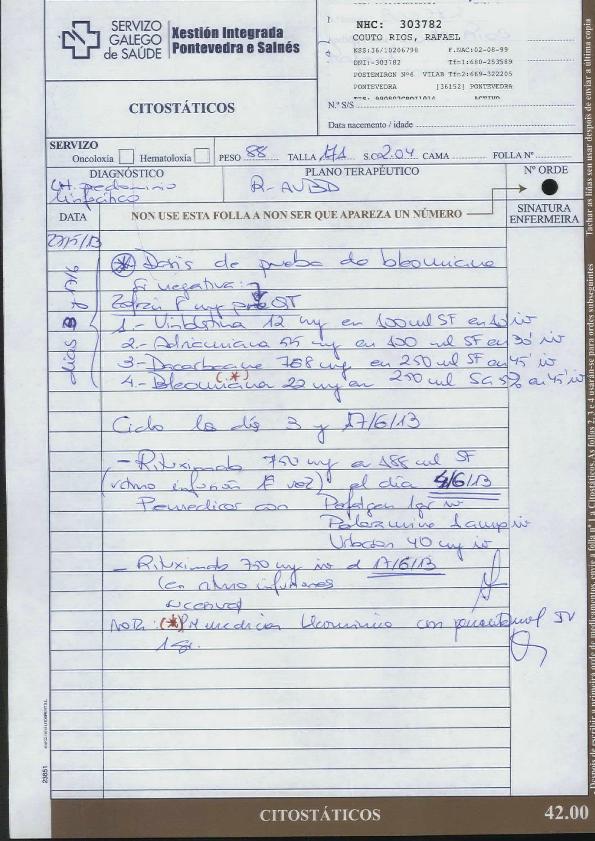 SERVIZO GALEGO de SAÚDE
Xestión Integrada Pontevedra e Salnés
NHC: 303782
COUTO RIOS, RAFAEL
KSS:36/10206798 F.NAC:02-08-99
DNI:-303782 Tfn1:680-253589
POSTEMIRON Nº6 VILAB Tfn2:689-322205
PONTEVEDRA [36152] PONTEVEDRA
CITOSTÁTICOS
N.º S/S
Data nacemento / idade
SERVIZO
Oncoloxia Hematoloxia PESO 88 TALLA 171 S.C. 2.04 CAMA FOLLA Nº
DIAGNÓSTICO PLANO TERAPÉUTICO Nº ORDE
LH. predominio linfocítico
R-AVBD
DATA NON USE ESTA FOLLA A NON SER QUE APAREZA UN NÚMERO SINATURA ENFERMEIRA
27/5/13
dias 3 y 17/6
(*) Dosis de prueba de bleomicina
Si negativa:
Zofran 8 mg pre QT
1.- Vinblastina 12 mg en 100 ml SF en 10' iv
2.- Adriamicina 55 mg en 100 ml SF en 30' iv
3.- Dacarbacina 768 mg en 250 ml SF en 45' iv
4.- Bleomicina (*) 22 mg en 250 ml SG 5% en 45' iv
Ciclo los días 3 y 17/6/13
- Rituximab 750 mg en 188 ml SF
(ritmo infusión 1ª vez) el día 4/6/13
Premedicar con Perfalgan 1gr iv
Polaramine 1 amp iv
Urbason 40 mg iv
- Rituximab 750 mg iv el 17/6/13
(en ritmo infusiones
sucesivas)
NOTA: (*) Premedicar bleomicina con paracetamol IV
1 gr.
23851
CITOSTÁTICOS 42.00